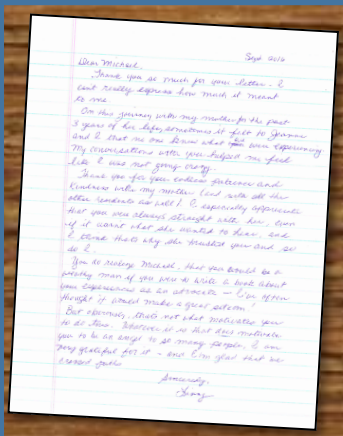 Sept 2012
Dear Michael,
Thank you so much for your letter - I
can't really express how much it meant
to me.
On this journey with my mother for the past
3 years of her life, sometimes it felt to
and I that no one knew what was even experiencing
My conversations with you helped me feel
like I was not going crazy.
Thank you for your endless patience and
kindness with my mother (and with all the
other residents as well). I especially appreciate
that you were always straight with her, even
if it wasn't what she wanted to hear, and
I think that's why she trusted you and so
do I.
You do realize Michael, that you would be a
wealthy man if you were to write a book about
your experiences as an advocate - I've often
thought it would make a great sitcom.
But obviously, that's not what motivates you
to do this. Whatever it is that does motivate
you to be an angel to so many people, I am
very grateful for it - and I'm glad that we
crossed paths
Sincerely,